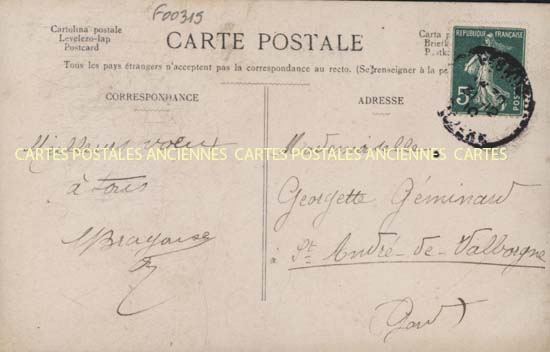 F00315
Cartolina postale
Levelezo-lap
Postcard
CARTE POSTALE
Carta p
Brietk
Postk
Tous les pays étrangers n'acceptent pas la correspondance au recto. (Se renseigner à la po
RÉPUBLIQUE FRANÇAISE
5
POSTES
CORRESPONDANCE
ADRESSE
Meilleurs voeux
à tous
Mademoiselle
Georgette Géminard
à St André-de-Valborgne
Gard
CARTES POSTALES ANCIENNES CARTES POSTALES ANCIENNES CARTES